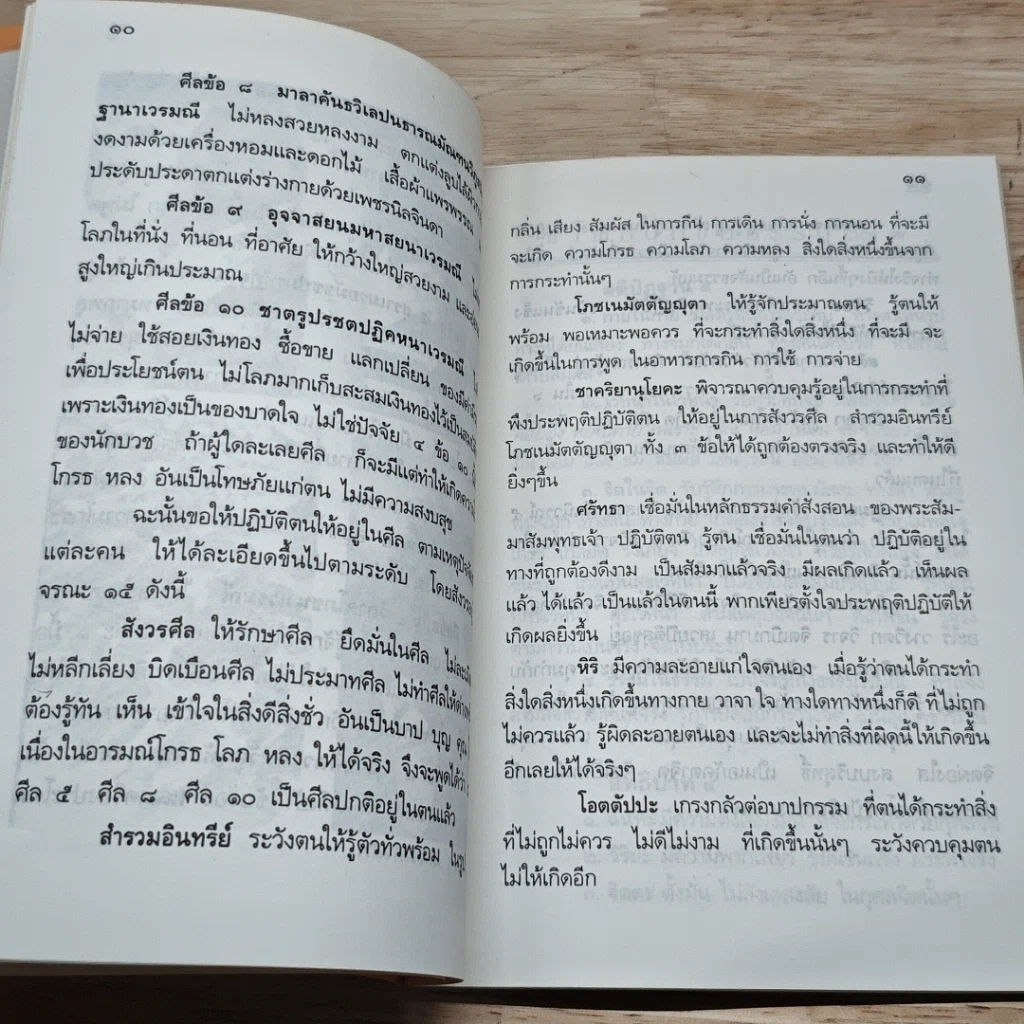 ๑๐
ศีลข้อ ๘ มาลาคันธวิเลปนธารณมัณฑนวิภูส
ฐานาเวรมณี ไม่หลงสวยหลงงาม ตกแต่งลูบไล้
งดงามด้วยเครื่องหอมและดอกไม้ เสื้อผ้าแพรพรรณ
ประดับประดาตกแต่งร่างกายด้วยเพชรนิลจินดา
ศีลข้อ ๙ อุจจาสยนมหาสยนาเวรมณี
โลภในที่นั่ง ที่นอน ที่อาศัย ให้กว้างใหญ่สวยงาม และ
สูงใหญ่เกินประมาณ
ศีลข้อ ๑๐ ชาตรูปรชตปฏิคหนาเวรมณี
ไม่จ่าย ใช้สอยเงินทอง ซื้อขาย แลกเปลี่ยน ของมีค่า
เพื่อประโยชน์ตน ไม่โลภมากเก็บสะสมเงินทองไว้เป็น
เพราะเงินทองเป็นของบาดใจ ไม่ใช่ปัจจัย ๔ ข้อ ๑๐
ของนักบวช ถ้าผู้ใดละเลยศีล ก็จะมีแต่ทำให้เกิด
โกรธ หลง อันเป็นโทษภัยแก่ตน ไม่มีความสงบสุข
ฉะนั้นขอให้ปฏิบัติตนให้อยู่ในศีล ตามเหตุปัจจัย
แต่ละคน ให้ได้ละเอียดขึ้นไปตามระดับ โดย
จรณะ ๑๕ ดังนี้
สังวรศีล ให้รักษาศีล ยึดมั่นในศีล
ไม่หลีกเลี่ยง บิดเบือนศีล ไม่ประมาทศีล ไม่ทำศีลให้
ต้องรู้ทัน เห็น เข้าใจในสิ่งดีสิ่งชั่ว อันเป็นบาป บุญ คุณ
เนื่องในอารมณ์โกรธ โลภ หลง ให้ได้จริง จึงจะพูดได้ว่า
ศีล ๕ ศีล ๘ ศีล ๑๐ เป็นศีลปกติอยู่ในตนแล้ว
สำรวมอินทรีย์ ระวังตนให้รู้ตัวทั่วพร้อม ในรูป
๑๑
กลิ่น เสียง สัมผัส ในการกิน การเดิน การนั่ง การนอน ที่จะมี
จะเกิด ความโกรธ ความโลภ ความหลง สิ่งใดสิ่งหนึ่งขึ้นจาก
การกระทำนั้นๆ
โภชเนมัตตัญญุตา ให้รู้จักประมาณตน รู้ตนให้
พร้อม พอเหมาะพอควร ที่จะกระทำสิ่งใดสิ่งหนึ่ง ที่จะมี จะ
เกิดขึ้นในการพูด ในอาหารการกิน การใช้ การจ่าย
ชาคริยานุโยคะ พิจารณาควบคุมรู้อยู่ในการกระทำที่
พึงประพฤติปฏิบัติตน ให้อยู่ในการสังวรศีล สำรวมอินทรีย์
โภชเนมัตตัญญุตา ทั้ง ๓ ข้อให้ได้ถูกต้องตรงจริง และทำให้ดี
ยิ่งๆขึ้น
ศรัทธา เชื่อมั่นในหลักธรรมคำสั่งสอน ของพระสัม-
มาสัมพุทธเจ้า ปฏิบัติตน รู้ตน เชื่อมั่นในตนว่า ปฏิบัติอยู่ใน
ทางที่ถูกต้องดีงาม เป็นสัมมาแล้วจริง มีผลเกิดแล้ว เห็นผล
แล้ว ได้แล้ว เป็นแล้วในตนนี้ พากเพียรตั้งใจประพฤติปฏิบัติให้
เกิดผลยิ่งขึ้น
หิริ มีความละอายแก่ใจตนเอง เมื่อรู้ว่าตนได้กระทำ
สิ่งใดสิ่งหนึ่งเกิดขึ้นทางกาย วาจา ใจ ทางใดทางหนึ่งก็ดี ที่ไม่ถูก
ไม่ควรแล้ว รู้ผิดละอายตนเอง และจะไม่ทำสิ่งที่ผิดนี้ให้เกิดขึ้น
อีกเลยให้ได้จริงๆ
โอตตัปปะ เกรงกลัวต่อบาปกรรม ที่ตนได้กระทำสิ่ง
ที่ไม่ถูกไม่ควร ไม่ดีไม่งาม ที่เกิดขึ้นนั้นๆ ระวังควบคุมตน
ไม่ให้เกิดอีก